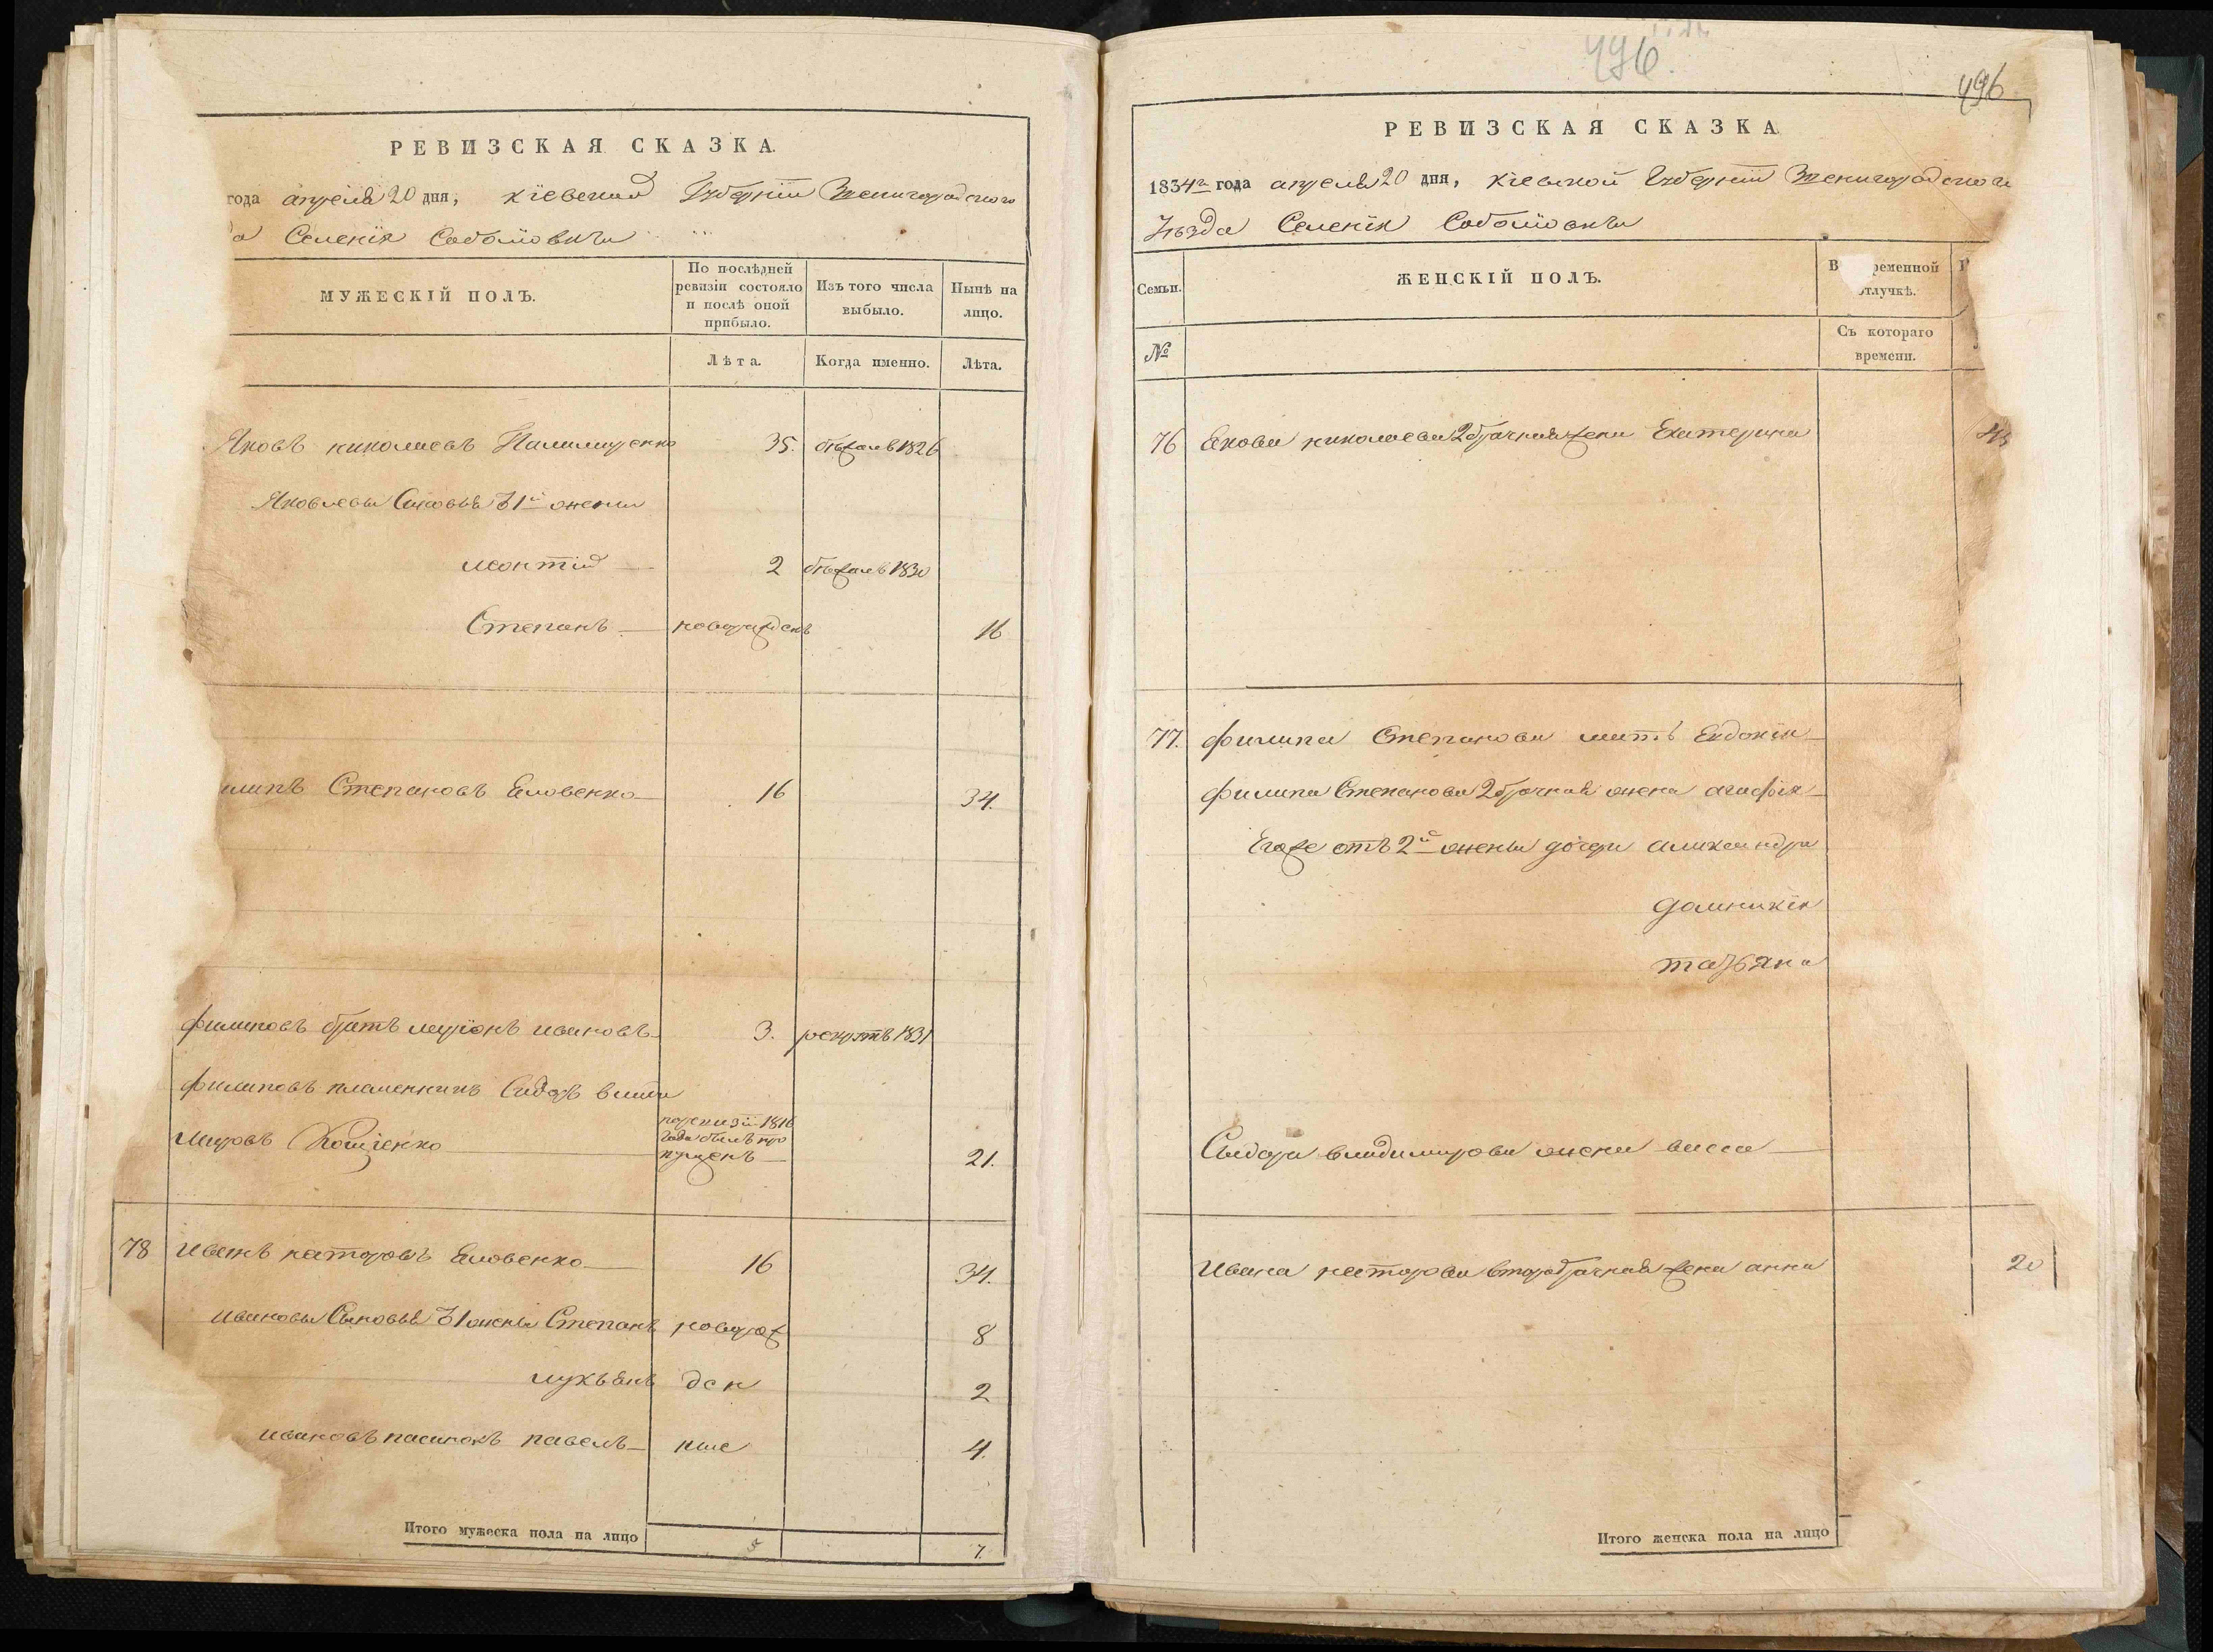 РЕВИЗСКАЯ СКАЗКА.
года апреля 20 дня, кіевской Губерніи Звенигородского
да Селенія Соболювки
МУЖЕСКІЙ ПОЛЪ.
По послѣдней ревизіи состояло и послѣ оной прибыло.
Изъ того числа выбыло.
Нынѣ на лицо.
Лѣта.
Когда именно.
Лѣта.
Яковъ николаевъ 35. бѣжалъ 1826
Яковлевы Сыновья З 1й жены
леонтій 2 бѣжалъ 1830
Степанъ новорожденъ 16
липъ Степановъ Еловенко 16 34.
филиповъ братъ ивановъ 3. рекрутъ 1831
филиповъ племенникъ Сидоръ влади
мировъ
поревизіи 1816
года былъ про
пущенъ 21.
78 иванъ несторовъ Еловенко 16 34.
ивановы Сыновья З 1 жены Степанъ новорож 8
лукъянъ ден 2
ивановъ пасинокъ павелъ ные 4.
Итого мужеска пола на лицо 5 7.
496.
496
РЕВИЗСКАЯ СКАЗКА
1834го года апреля 20 дня, кіевской Губерніи Звенигородского
Уѣзда Селенія Соболювки
Семьи.
ЖЕНСКІЙ ПОЛЪ.
В ременной
отлучкѣ.
№
Съ котораго
времени.
76 Екова николаева 2брачная жена Екатерина
77. филипа Степанова мать Евдокія
филипа Степанова 2брачная жена агафія
Егоже отъ 2й жены дочери александра
доминикія
татьяна
Сыдора владимирова жена васса
Ивана несторова второбрачная жена анна 20
Итого женска пола на лицо